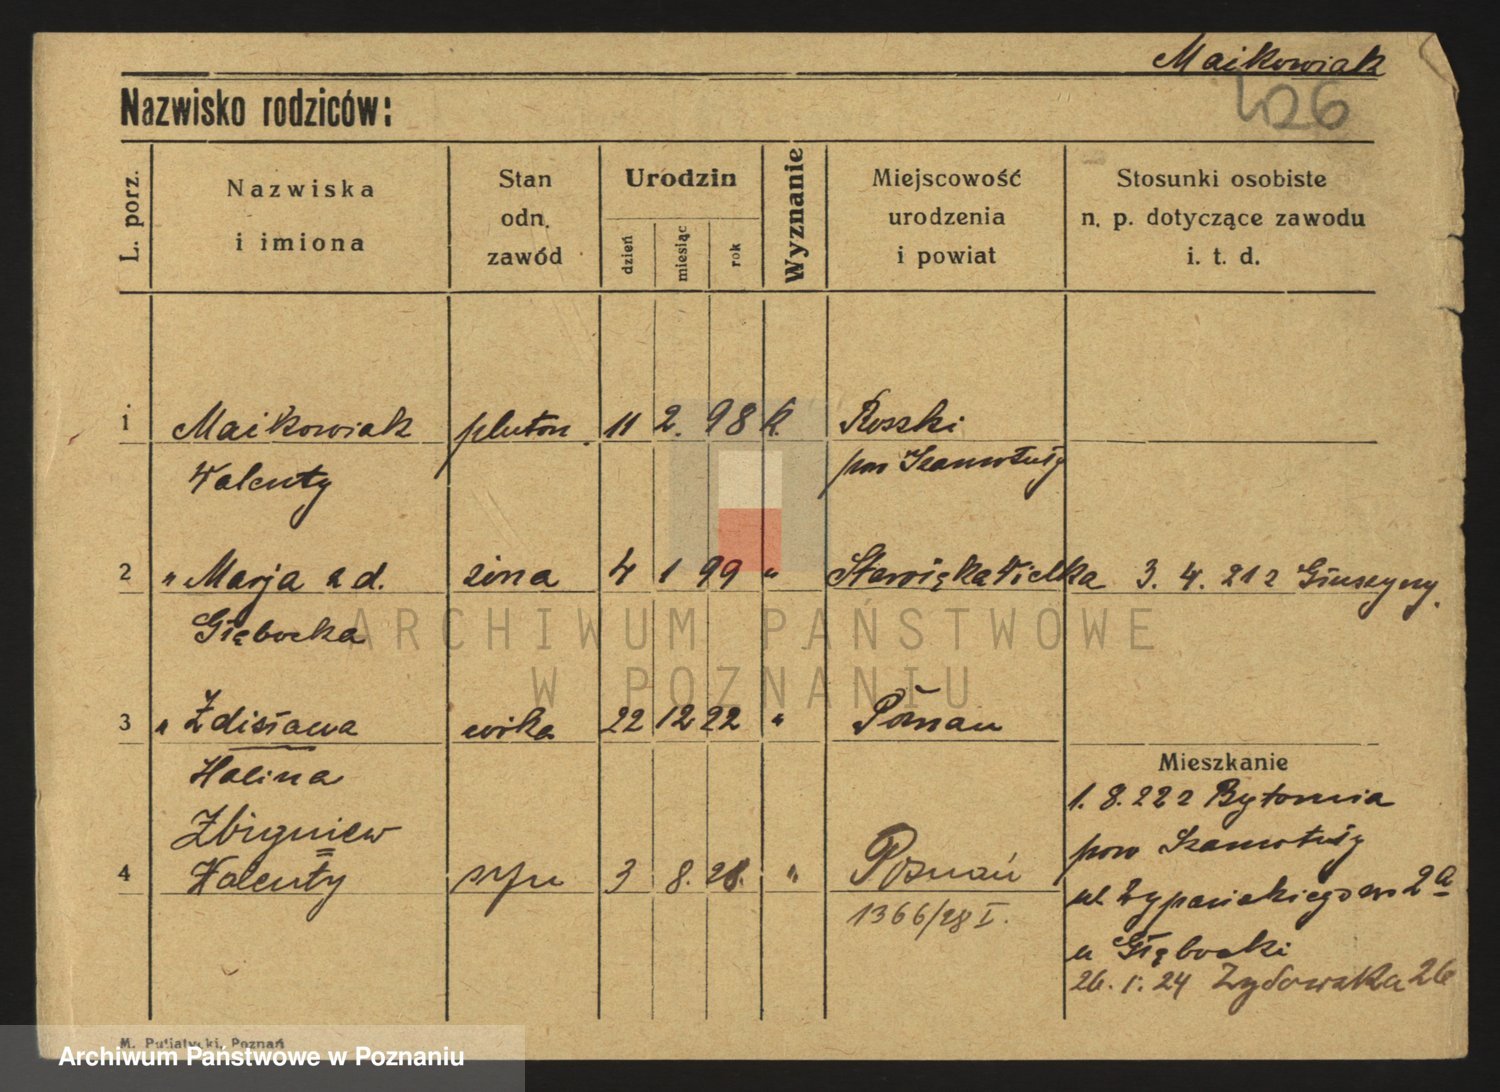 Maikowiak
426
Nazwisko rodziców:
L. porz.
Nazwiska
i imiona
Stan
odn.
zawód
Urodzin
dzień
miesiąc
rok
Wyznanie
Miejscowość
urodzenia
i powiat
Stosunki osobiste
n. p. dotyczące zawodu
i. t. d.
1 Maikowiak pluton. 11 2. 98 k. Roszki
Walenty pow Szamotuły
2 " Marja z d. żona 4 1 99 " Starołęka Wielka 3. 4. 21 z
Głębocka
3 " Zdisława córka 22 12 22 " Poznań
Halina
Zbigniew
4 Walenty syn 3 8. 28. " Poznań
1366/28 I.
Mieszkanie
1. 8. 22 z Bytomia
pow Szamotuły
ul. 2a
u Głębocki
26. 1. 24 Żydowska 26
M. Putiatycki, Poznań
ARCHIWUM PAŃSTWOWE
W POZNANIU
Archiwum Państwowe w Poznaniu